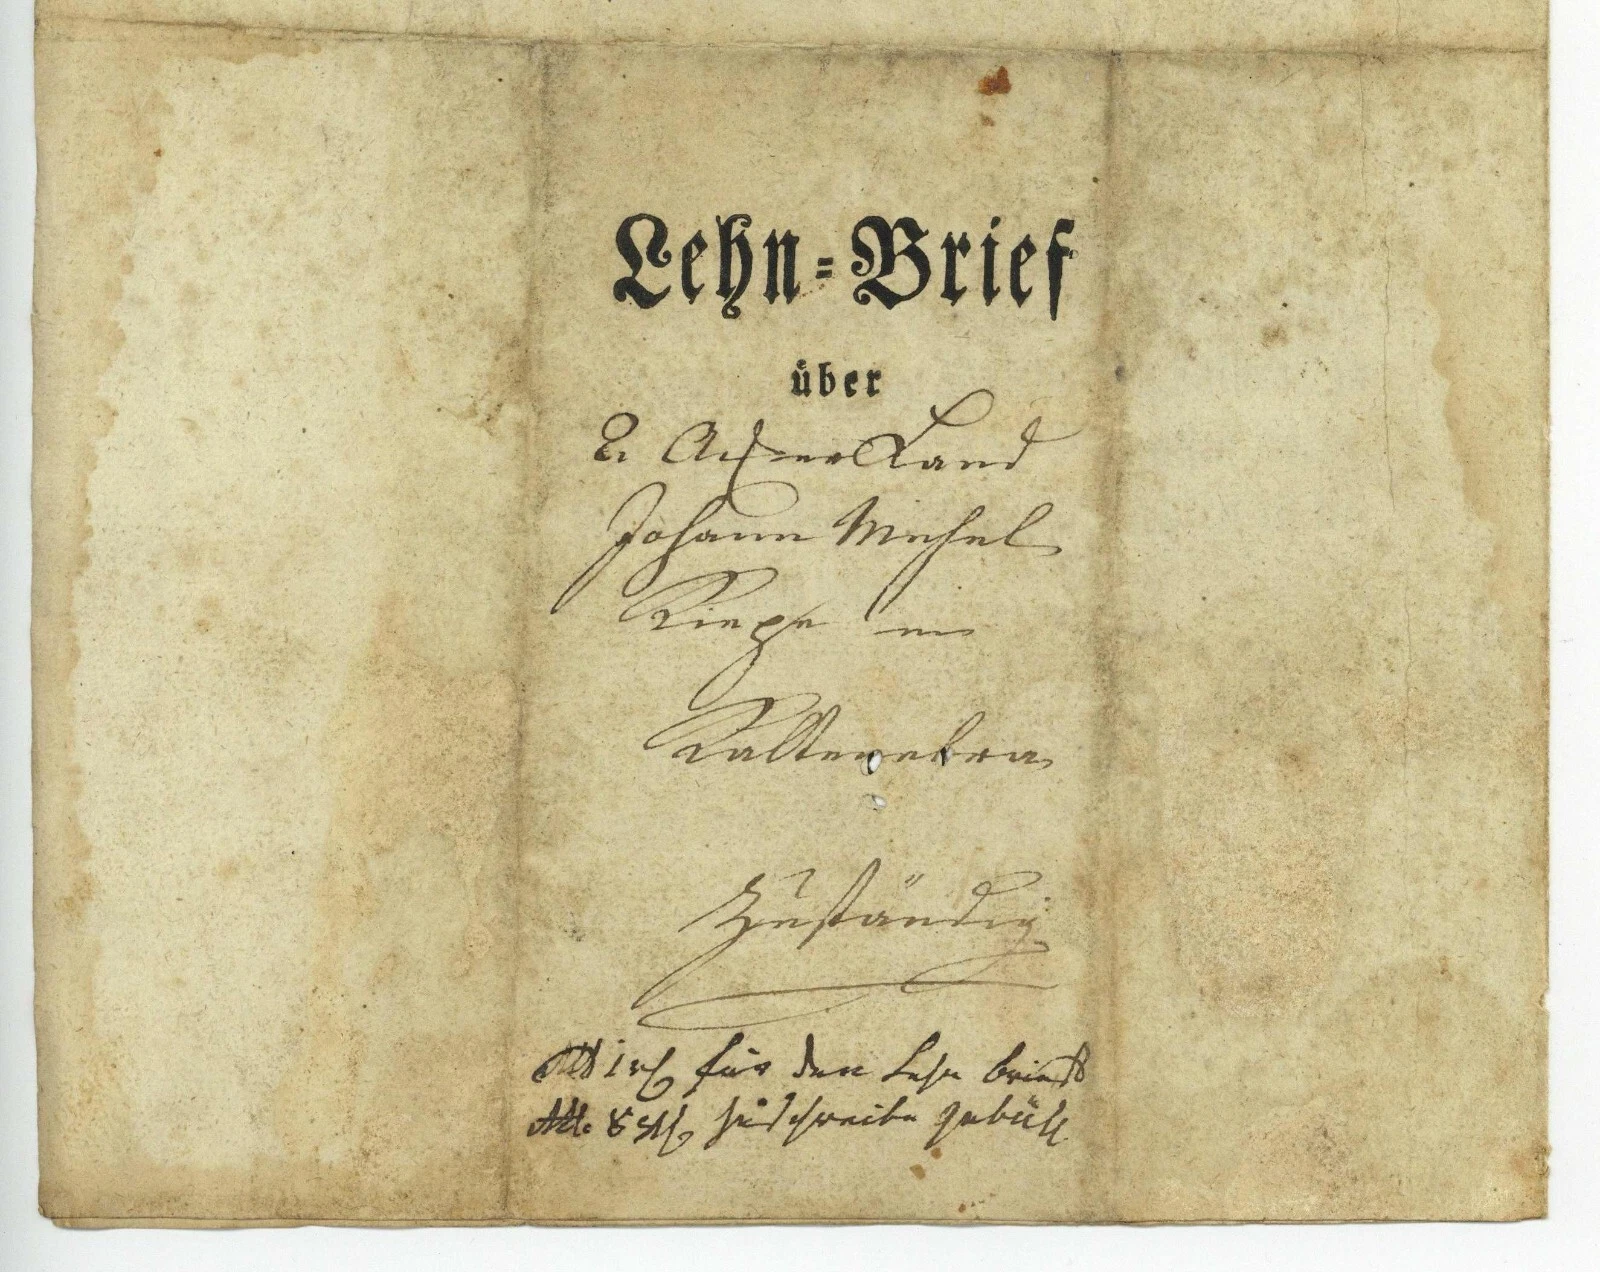 Lehn=Brief
über
2. Acker Land
Johann Michel
in
Kaltenebra
Zuständig
für den Lehn brief